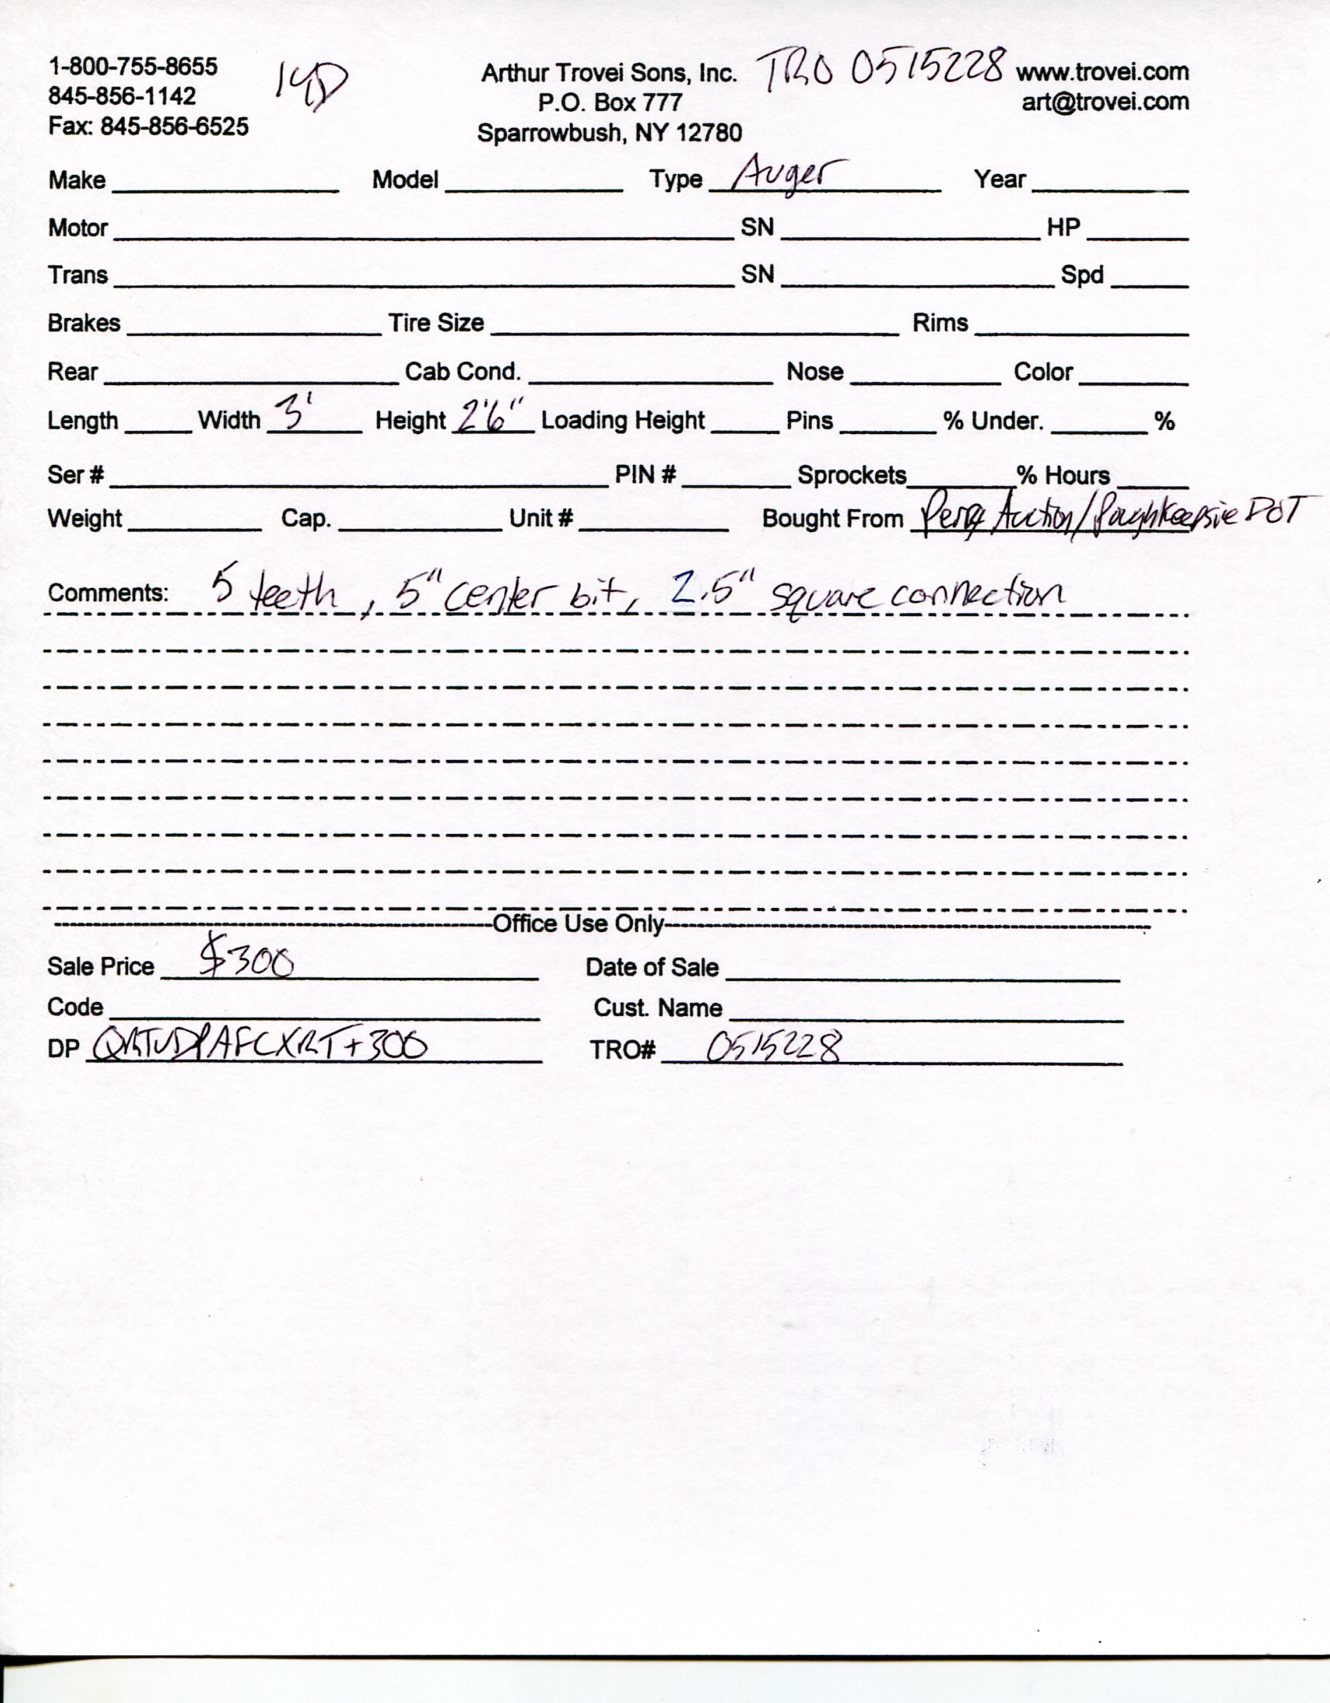 1-800-755-8655
845-856-1142
Fax: 845-856-6525
Arthur Trovei Sons, Inc. TRO 0515228 www.trovei.com
P.O. Box 777 art@trovei.com
Sparrowbush, NY 12780
Make Model Type Auger Year
Motor SN HP
Trans SN Spd
Brakes Tire Size Rims
Rear Cab Cond. Nose Color
Length Width 3' Height 2'6" Loading Height Pins % Under. %
Ser # PIN # Sprockets % Hours
Weight Cap. Unit # Bought From Auction/Poughkeepsie DOT
Comments: 5 teeth, 5" center bit, 2.5" square connection
Office Use Only
Sale Price $300 Date of Sale
Code Cust. Name
DP TRO# 0515228